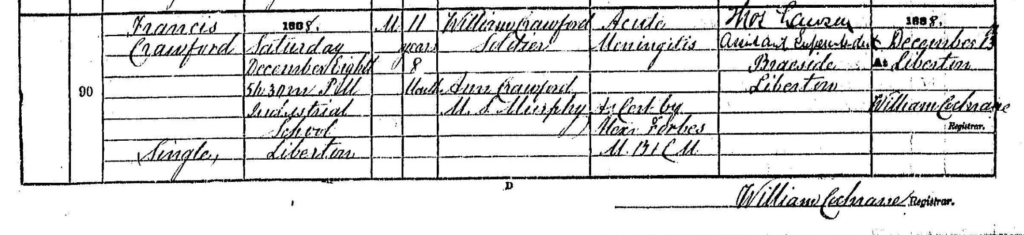 Francis 1888. M 11 William Crawford Acute Thos Lawson 1888,
Crawford Saturday years Soldier Meningitis Assistant Superintendent December 13
December Eighth 8 Braeside At Liberton
90 5h 30m P.M. Months Ann Crawford Liberton
Industrial M. S. Murphy As Cert by William Cochrane
School Alexr Forbes Registrar.
Single, Liberton M. B & C M.
D
William Cochrane Registrar.